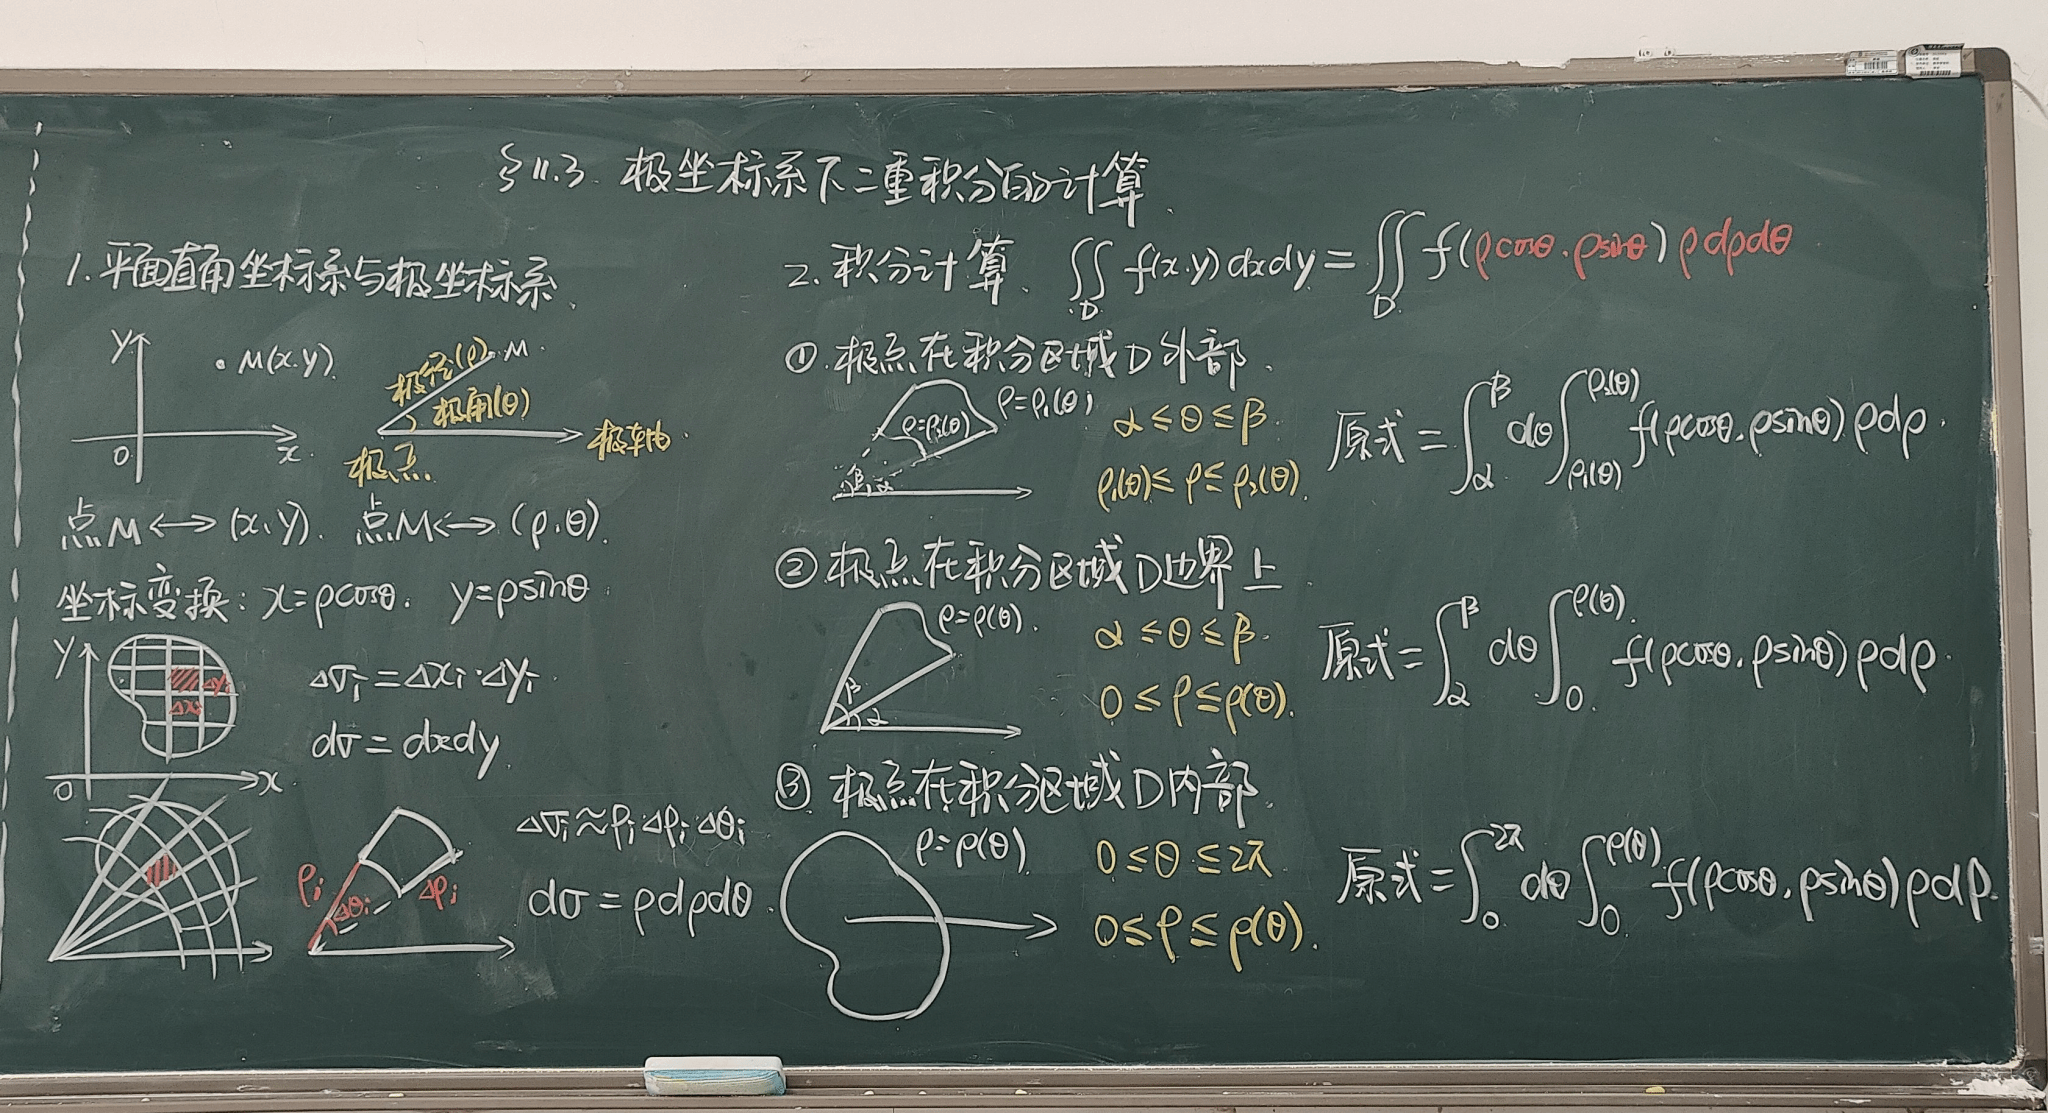 §11.3. 极坐标系下二重积分的计算.
1. 平面直角坐标系与极坐标系.
y
M(x.y).
0
x.
极径(ρ)
M.
极角(θ)
极轴.
极点.
点M⟷(x,y). 点M⟷(ρ,θ).
坐标变换: x=ρcosθ. y=ρsinθ.
y
Δyi
Δxi
0
x
Δσi=Δxi·Δyi.
dσ=dxdy.
ρi
Δθi
Δρi
Δσi≈ρi·Δρi·Δθi
dσ=ρdρdθ.
2. 积分计算. ∬_D f(x.y)dxdy=∬_D f(ρcosθ.ρsinθ)ρdρdθ
① 极点在积分区域D外部.
ρ=ρ₁(θ)
ρ=ρ₂(θ)
β
α
α≤θ≤β.
ρ₁(θ)≤ρ≤ρ₂(θ).
原式=∫_α^β dθ∫_{ρ₁(θ)}^{ρ₂(θ)} f(ρcosθ.ρsinθ)ρdρ.
② 极点在积分区域D边界上.
ρ=ρ(θ).
β
α
α≤θ≤β.
0≤ρ≤ρ(θ).
原式=∫_α^β dθ∫_0^{ρ(θ)} f(ρcosθ.ρsinθ)ρdρ.
③ 极点在积分区域D内部.
ρ=ρ(θ).
0≤θ≤2π
0≤ρ≤ρ(θ).
原式=∫_0^{2π} dθ∫_0^{ρ(θ)} f(ρcosθ.ρsinθ)ρdρ.